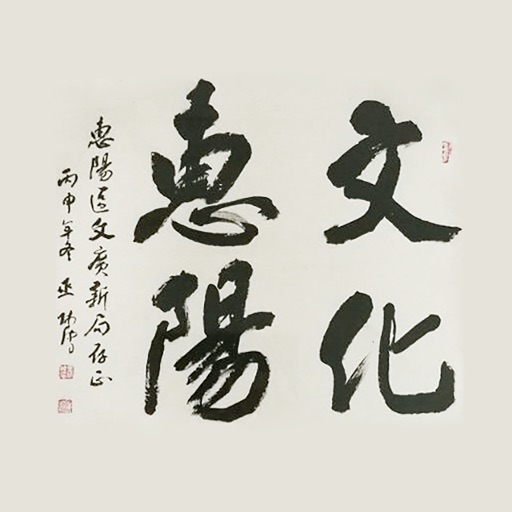 文化
惠陽
惠陽區文廣新局存正
丙申年冬 巫